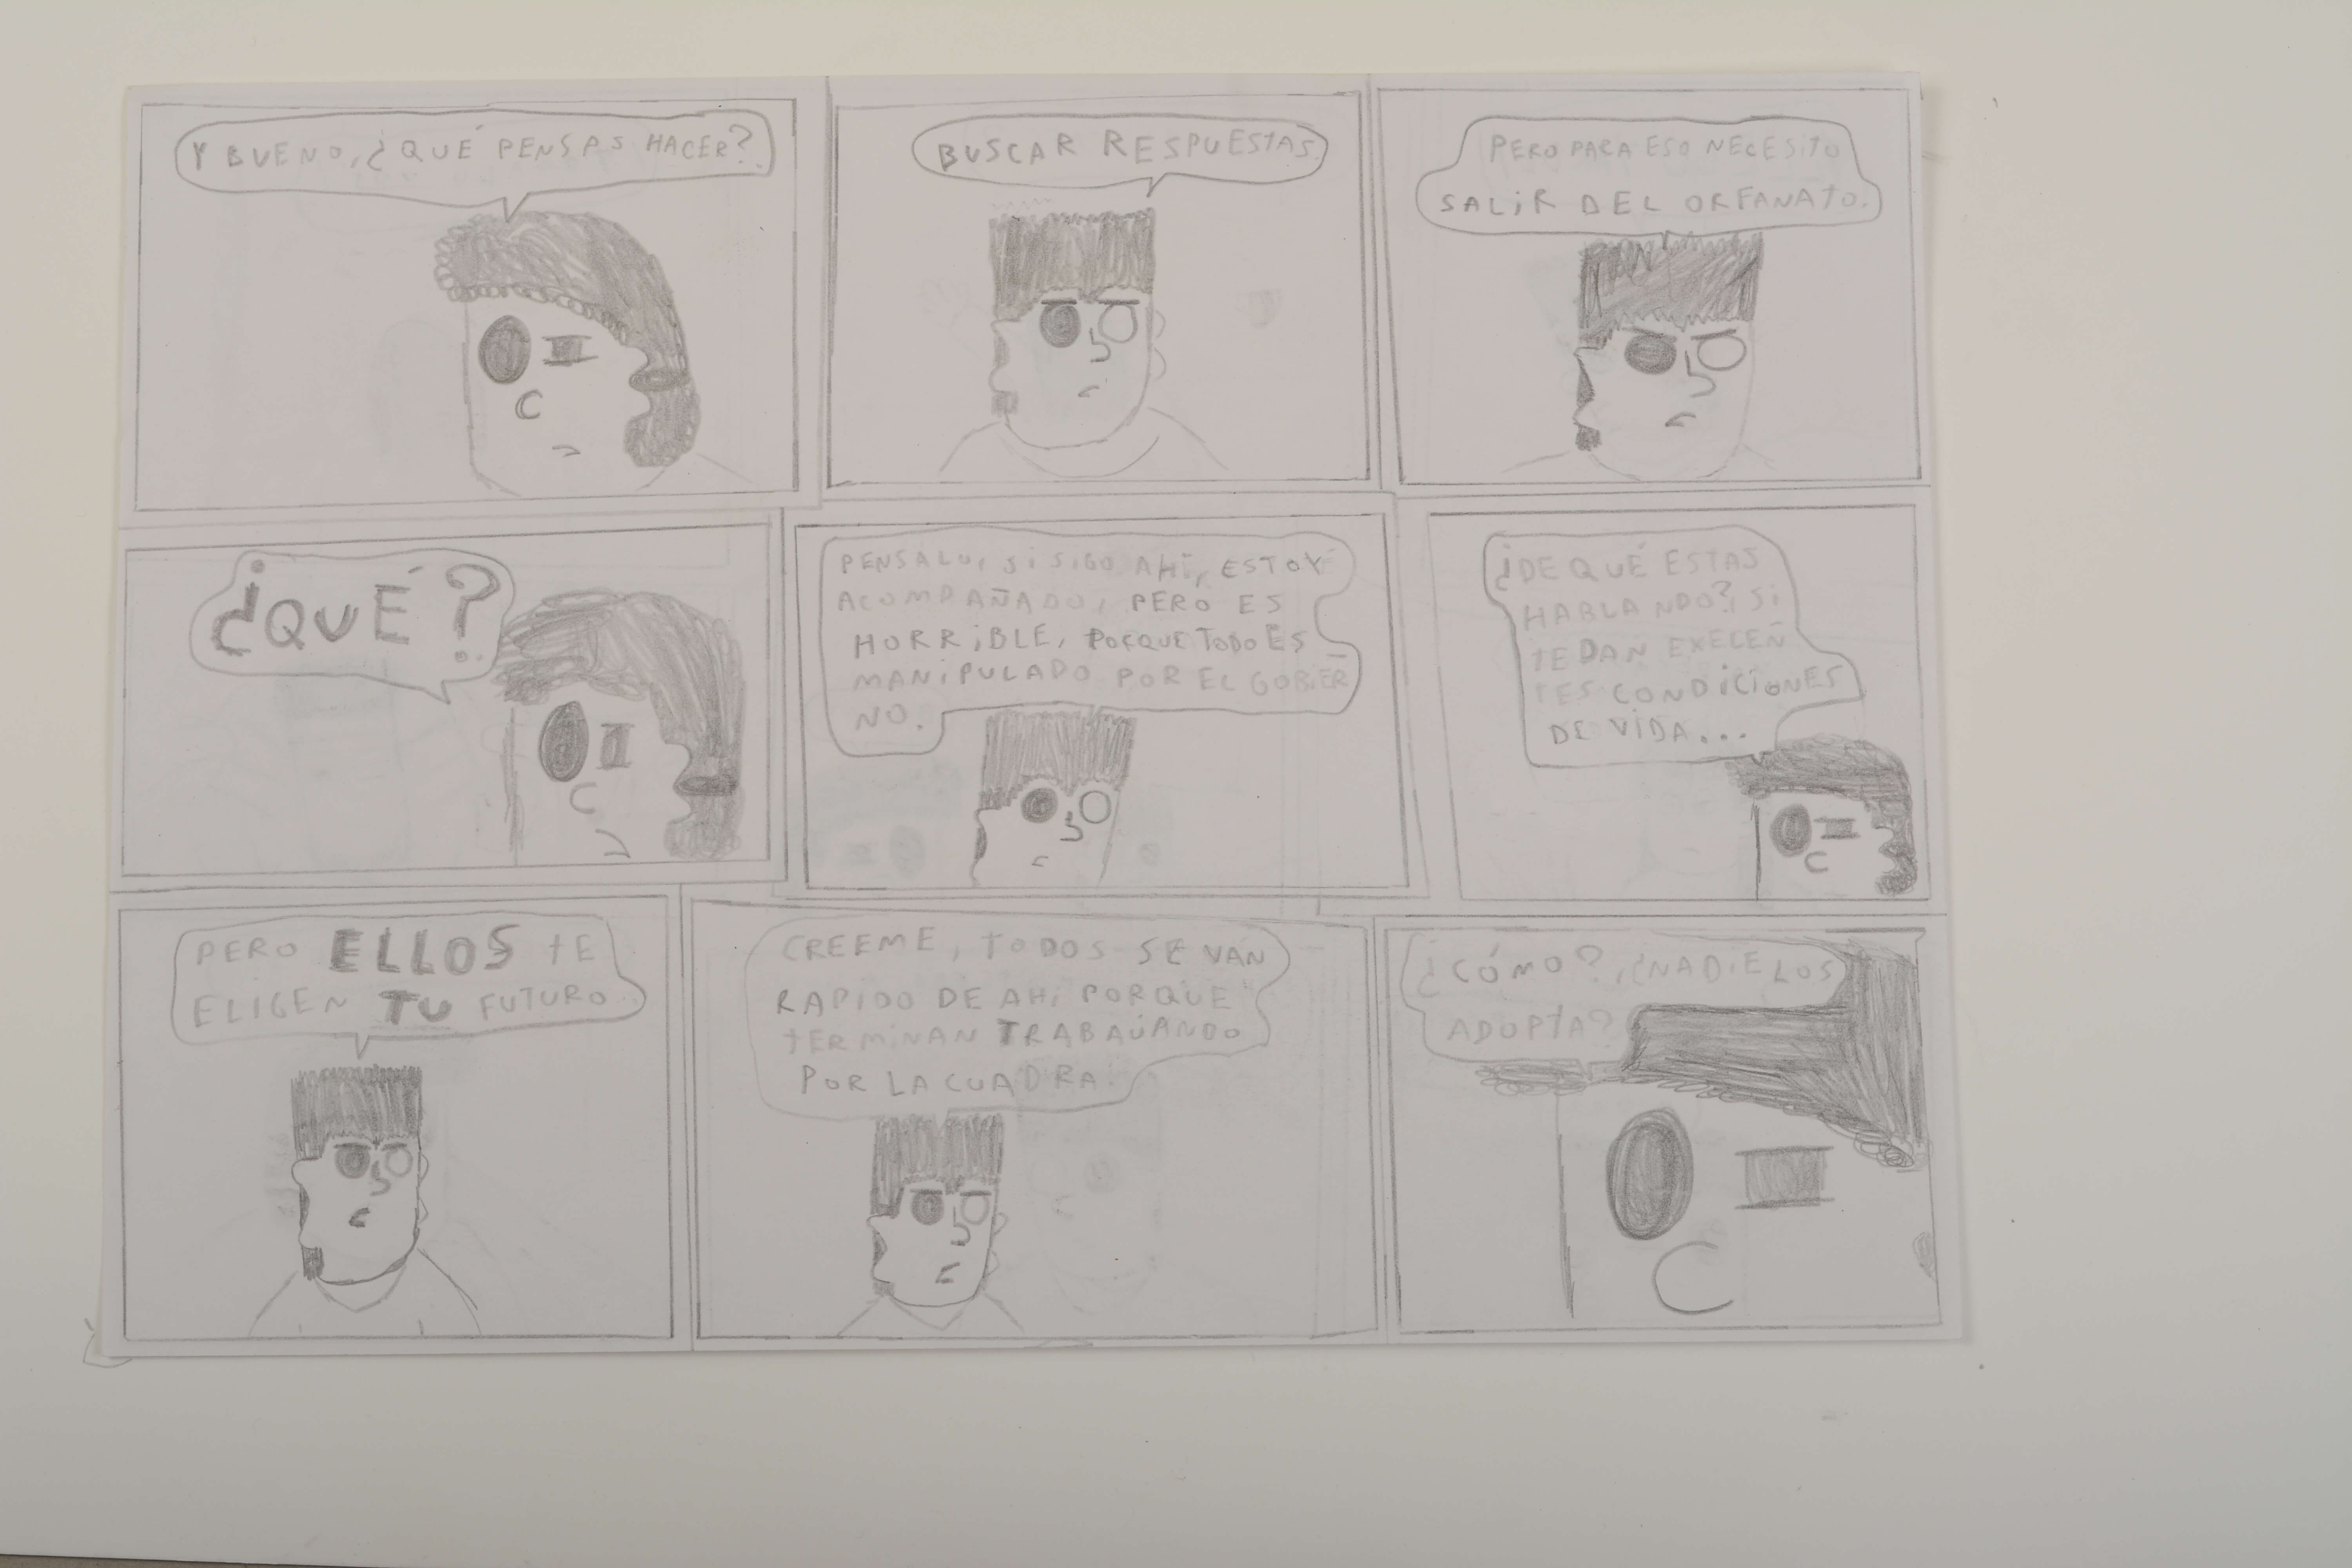 Y BUENO, ¿QUÉ PENSAS HACER?
BUSCAR RESPUESTAS.
PERO PARA ESO NECESITO
SALIR DEL ORFANATO.
¿QUÉ?
PENSALO, SI SIGO AHÍ, ESTOY
ACOMPAÑADO, PERO ES
HORRIBLE, PORQUE TODO ES
MANIPULADO POR EL GOBIER
NO.
¿DE QUÉ ESTAS
HABLANDO?, SI
TE DAN EXELEN
TES CONDICIONES
DE VIDA...
PERO ELLOS TE
ELIGEN TU FUTURO.
CREEME, TODOS SE VAN
RAPIDO DE AHI PORQUE
TERMINAN TRABAJANDO
POR LA CUADRA.
¿CÓMO?, ¿NADIE LOS
ADOPTA?